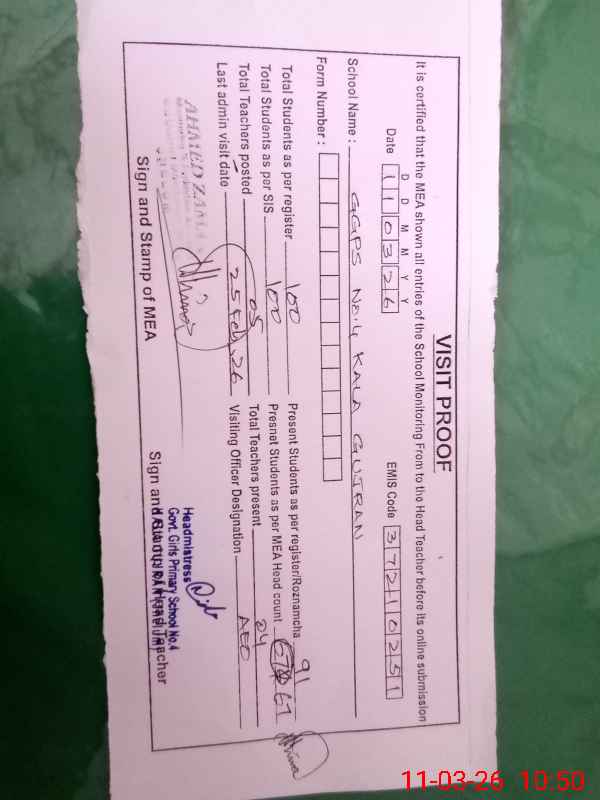 VISIT PROOF
It is certified that the MEA shown all entries of the School Monitoring From to the Head Teacher before its online submission
D D M M Y Y
Date 1 1 0 3 2 6 EMIS Code 3 7 2 1 0 2 5 1
School Name : GGPS No.4 KALA GUJRAN
Form Number :
Total Students as per register 100 Present Students as per register/Roznamcha 91
Total Students as per SIS 100 Presnet Students as per MEA Head count 67
Total Teachers posted 05 Total Teachers present 04
Last admin visit date 25 Feb, 26 Visiting Officer Designation AEO
AHMED ZAMAN
Headmistress
Govt. Girls Primary School No.4
Sign and Stamp of MEA Sign and Head Teacher
11-03-26 10:50